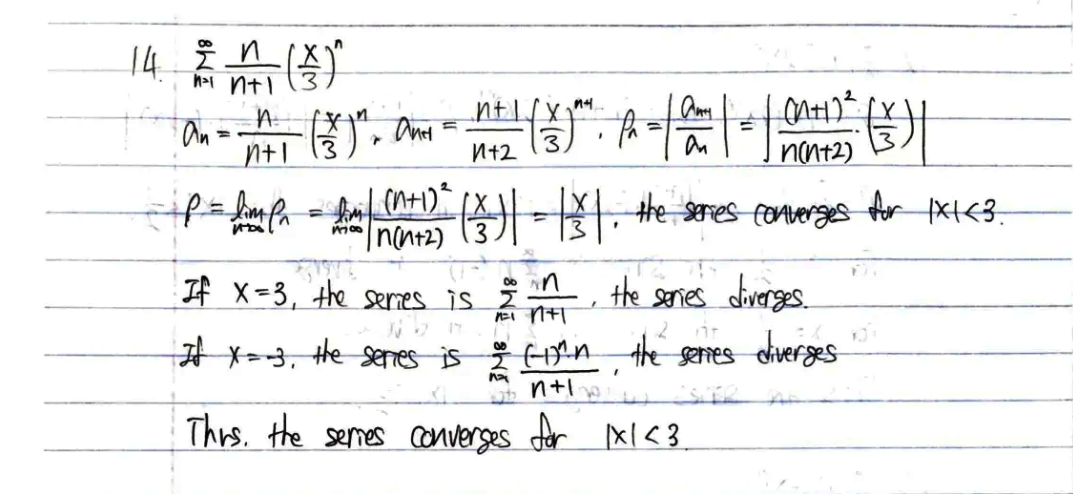 14. \sum_{n=1}^{\infty} \frac{n}{n+1} \left(\frac{x}{3}\right)^n
a_n = \frac{n}{n+1} \left(\frac{x}{3}\right)^n, a_{n+1} = \frac{n+1}{n+2} \left(\frac{x}{3}\right)^{n+1}, \rho_n = \left|\frac{a_{n+1}}{a_n}\right| = \left|\frac{(n+1)^2}{n(n+2)} \cdot \left(\frac{x}{3}\right)\right|
\rho = \lim_{n\to\infty} \rho_n = \lim_{n\to\infty} \left|\frac{(n+1)^2}{n(n+2)} \left(\frac{x}{3}\right)\right| = \left|\frac{x}{3}\right|, the series converges for |x|<3.
If x=3, the series is \sum_{n=1}^{\infty} \frac{n}{n+1}, the series diverges.
If x=-3, the series is \sum_{n=1}^{\infty} \frac{(-1)^n \cdot n}{n+1}, the series diverges
Thus, the series converges for |x|<3